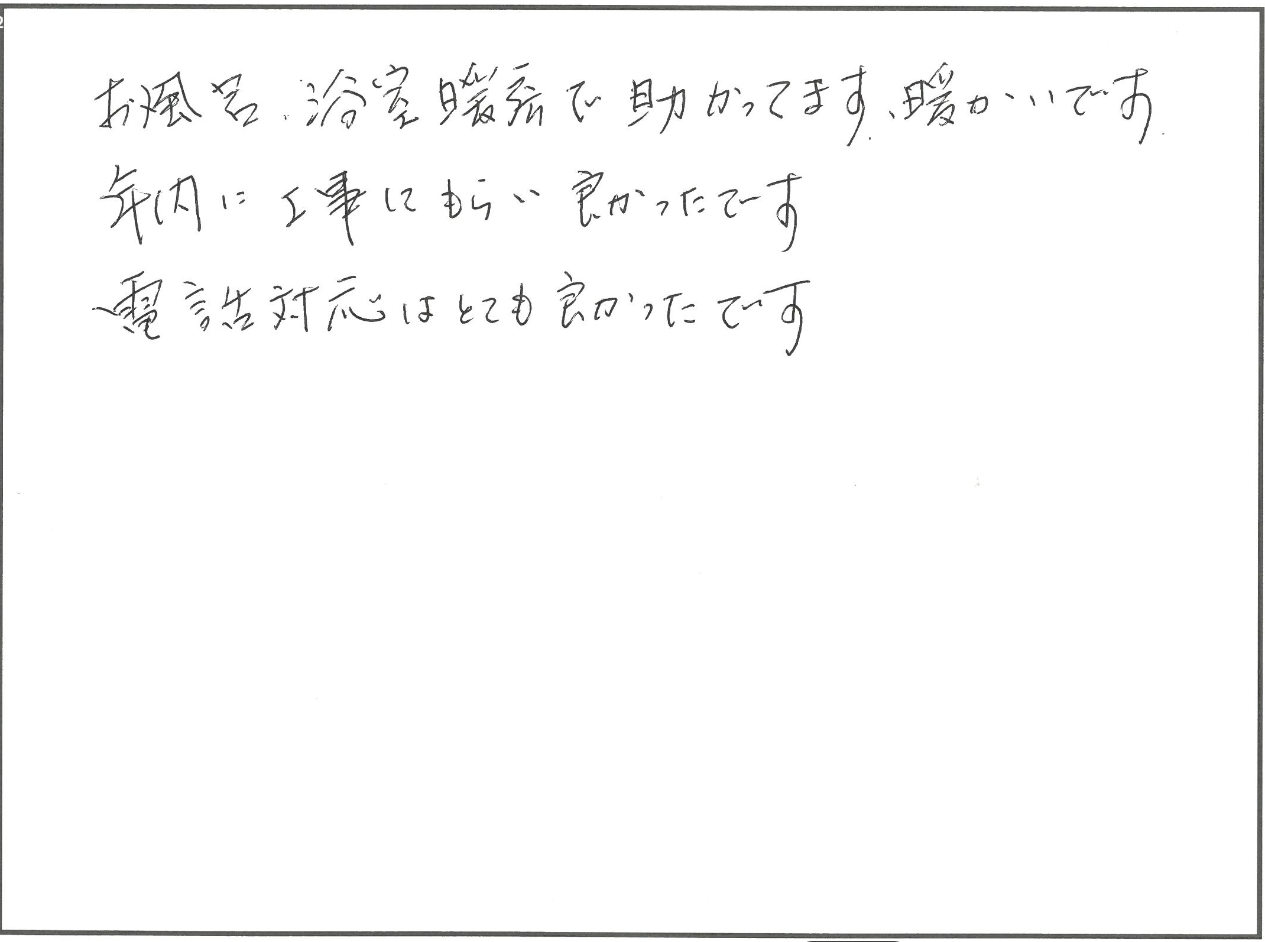 お風呂、浴室暖房で助かってます、暖かいです
年内に工事にもらい良かったです
電話対応はとても良かったです